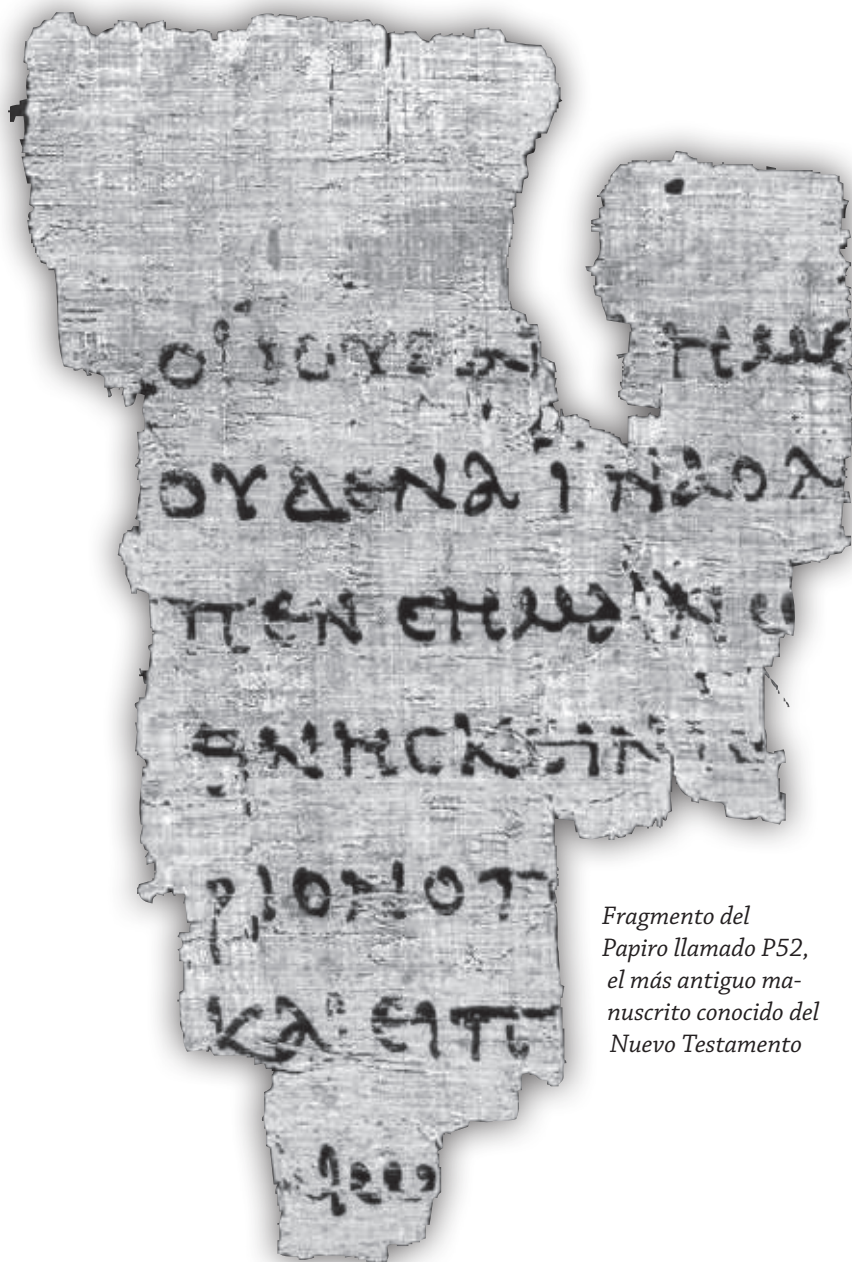 ΟΙ ΙΟΥΔΑΙ ΗΜΕ
ΟΥΔΕΝΑ ΙΝΑ Ο Λ
ΠΕΝ CΗΜΑΙΝΩ
ΘΝΗCΚΕΙΝ
ΡΙΟΝ Ο Π
ΚΑΙ ΕΙΠ
Fragmento del
Papiro llamado P52,
el más antiguo ma-
nuscrito conocido del
Nuevo Testamento